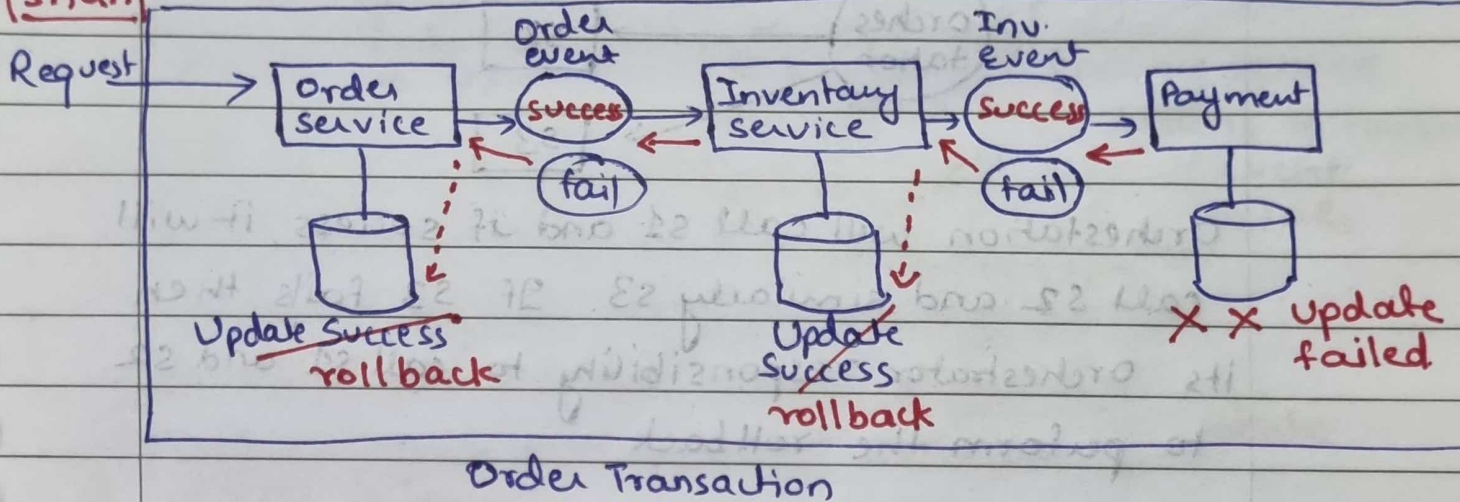 Request
Order
service
Order
event
success
fail
Inventory
service
Inv.
Event
success
fail
Payment
Update Success
rollback
Update
Success
rollback
X X Update
failed
Order Transaction